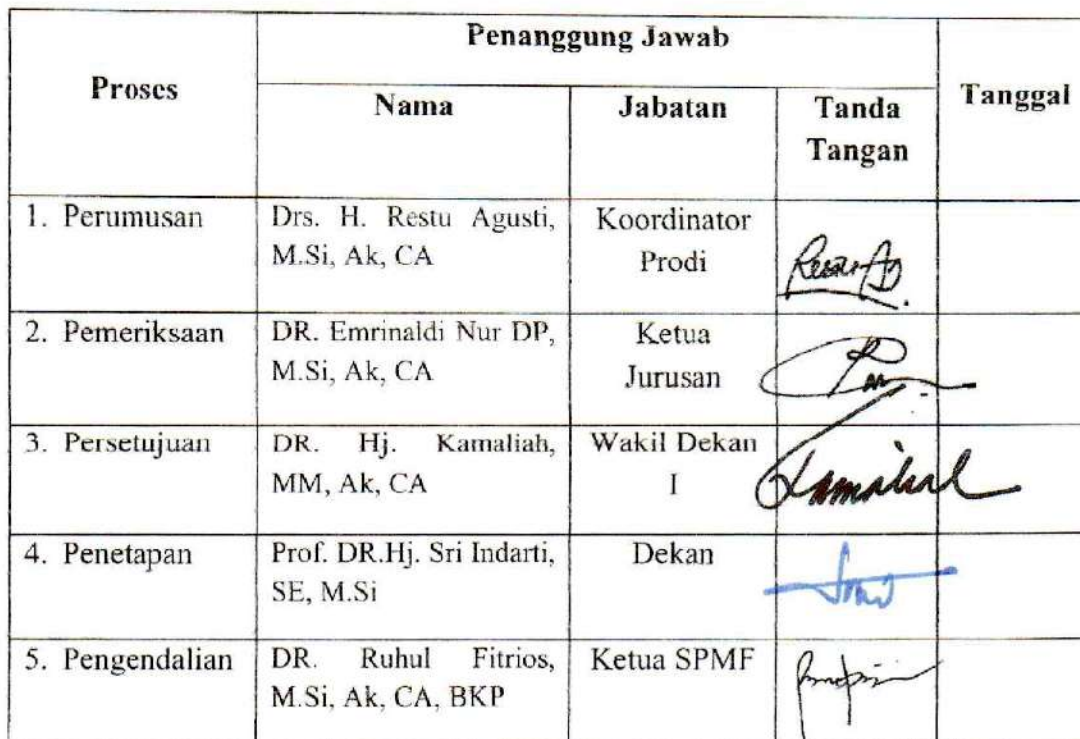 Penanggung Jawab
Proses
Tanggal
Nama
Jabatan
Tanda
Tangan
1. Perumusan
Drs. H. Restu Agusti,
M.Si, Ak, CA
Koordinator
Prodi
2. Pemeriksaan
DR. Emrinaldi Nur DP,
M.Si, Ak, CA
Ketua
Jurusan
3. Persetujuan
DR. Hj. Kamaliah,
MM, Ak, CA
Wakil Dekan
I
4. Penetapan
Prof. DR.Hj. Sri Indarti,
SE, M.Si
Dekan
5. Pengendalian
DR. Ruhul Fitrios,
M.Si, Ak, CA, BKP
Ketua SPMF